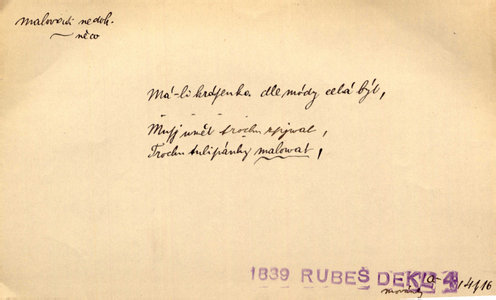 malovati nedok.
~ něco
Má-li krásenka dle módy celá být,
Musj umět trochu zpjwat,
Trochu tulipánky malowat,
1839 RUBEŠ DEKL 4